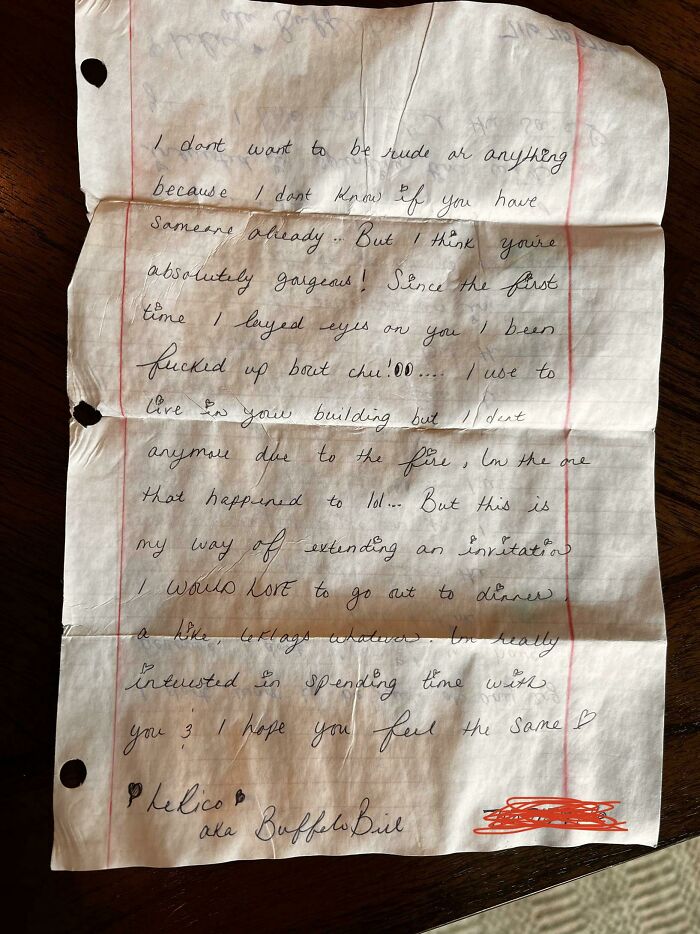 I dont want to be rude or anything
because I dont know if you have
someone already... But I think you're
absolutely gorgeous! Since the first
time I layed eyes on you I been
fucked up bout chu! .... I use to
live in your building but I dont
anymore due to the fire, Im the one
that happened to lol... But this is
my way of extending an invitation
I WOULD LOVE to go out to dinner,
a hike, whatever. Im really
interested in spending time with
you & I hope you feel the same
LeRico
aka Buffalo Bill